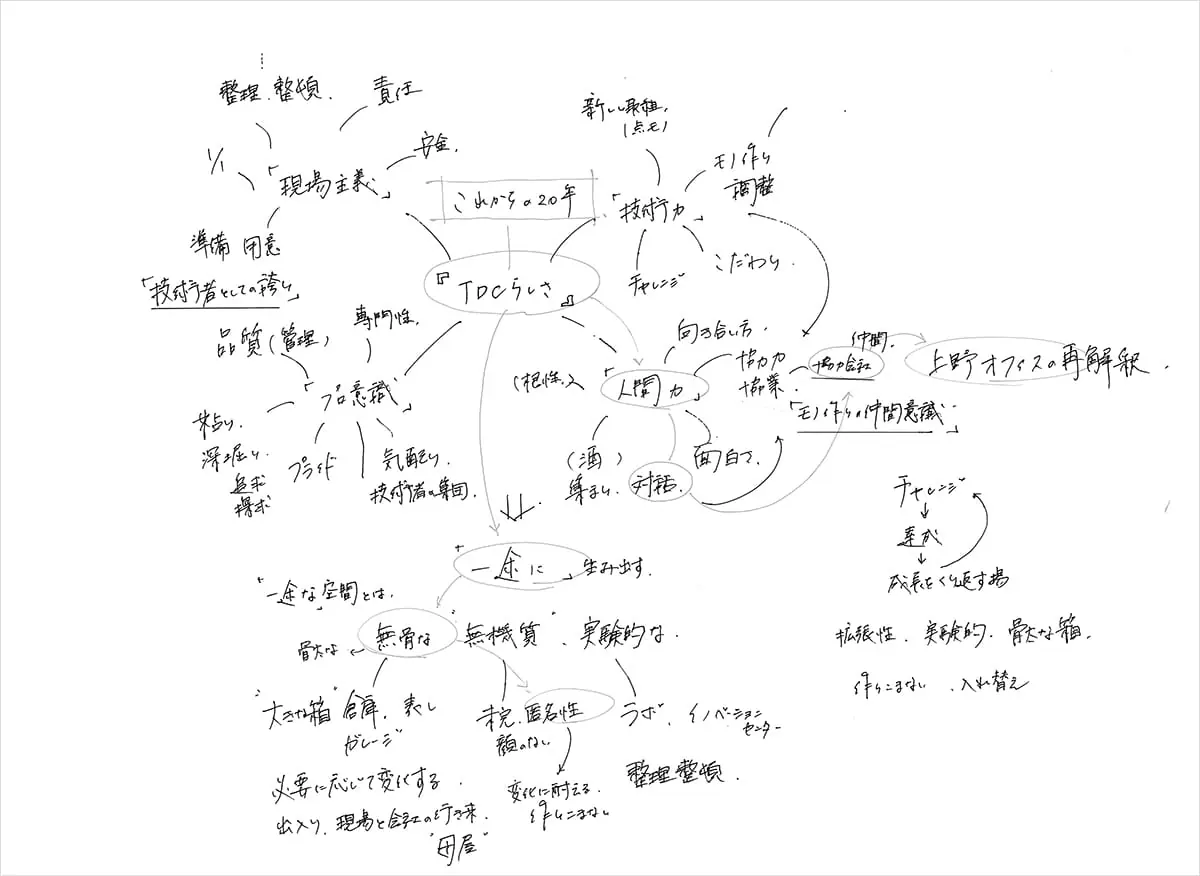 整理.整頓.
責任
1/1
安全.
「現場主義」
準備 用意
「技術者としての誇り」
これからの20年
『TDCらしさ』
新しい取組.
(点モ)
モノ作り
調整
「技術力」
チャレンジ
こだわり.
品質(管理)
専門性.
「プロ意識」
粘り.
深堀り.
追求
探求
プライド
気配り.
技術者の集団.
(根性.)
「人間力」
向き合い方.
協力力
協業
協力会社
仲間.
上野オフィスの再解釈.
「モノ作りの仲間意識」
(酒)
集まり.
対話.
面白さ.
チャレンジ
達成
成長をくり返す場
「一途に」生み出す.
「一途な空間」とは.
骨太な
無骨な
"無機質"
、実験的な.
"大きな箱"倉庫.表し
ガレージ
未完.匿名性
顔のない
ラボ.イノベーション
センター
拡張性.実験的.骨太な箱.
作りこまない.入れ替え
必要に応じて変化する.
変化に耐える.
作りこまない
整理整頓.
出入り.現場と会社の行き来.
"母屋"